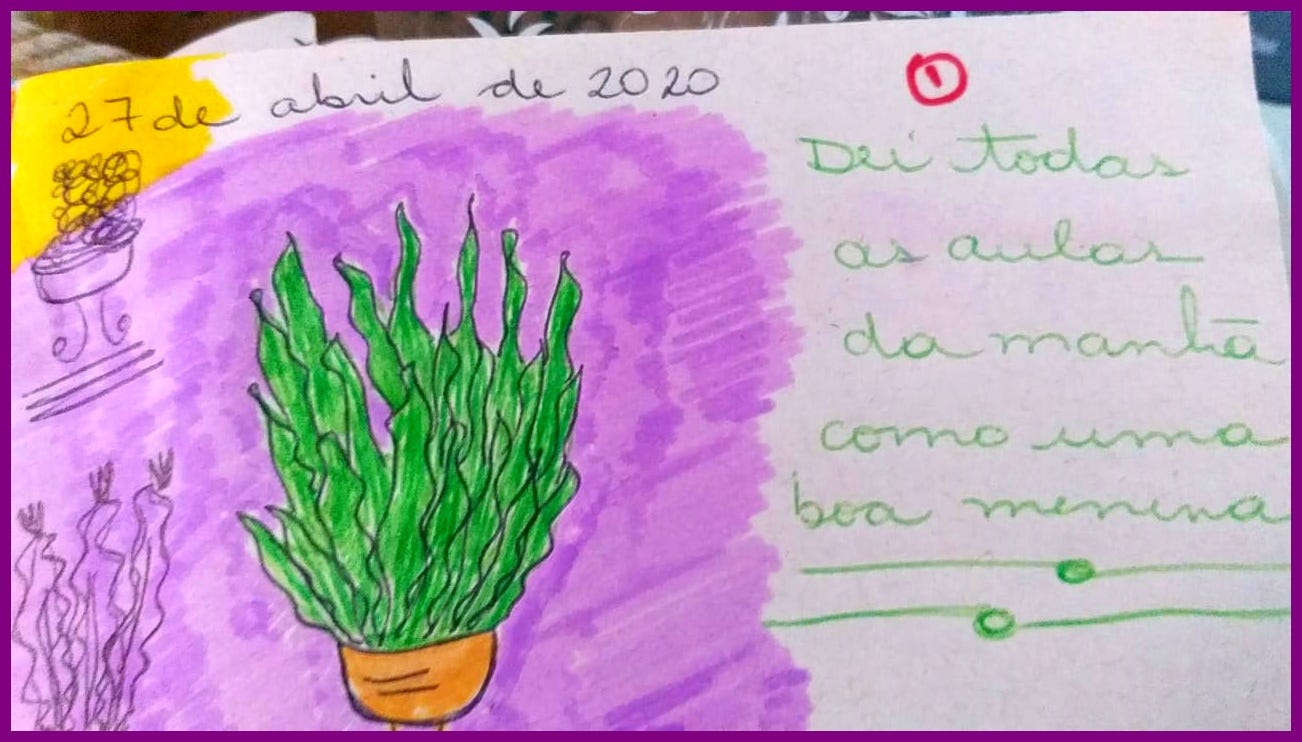 27 de abril de 2020
1
Dei todas
as aulas
da manhã
como uma
boa menina